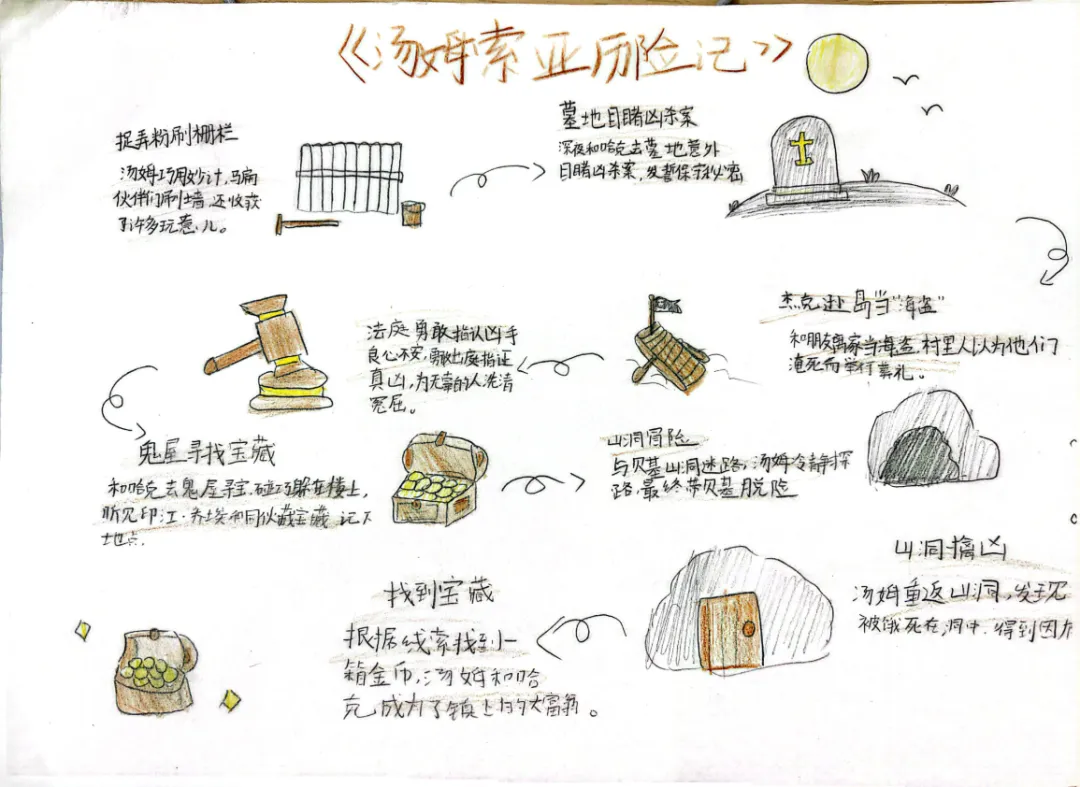 《汤姆索亚历险记》
捉弄粉刷栅栏
汤姆巧用妙计,骗
伙伴们刷墙,还收获
了许多玩意儿。
墓地目睹凶杀案
深夜和哈克去墓地意外
目睹凶杀案,发誓保守秘密
杰克逊岛当“海盗”
和朋友离家当海盗,村里人以为他们
淹死而举行葬礼。
法庭勇敢指认凶手
良心不安,出庭指证
真凶,为无辜的人洗清
冤屈。
鬼屋寻找宝藏
和哈克去鬼屋寻宝,碰巧躲在楼上,
听见印江·乔埃和同伙藏宝藏 记下
地点.
山洞冒险
与贝基山洞迷路,汤姆冷静探
路,最终带贝基脱险
山洞擒凶
汤姆重返山洞,发现
被饿死在洞中.得到
找到宝藏
根据线索找到一
箱金币,汤姆和哈
克成为了镇上的大富翁。